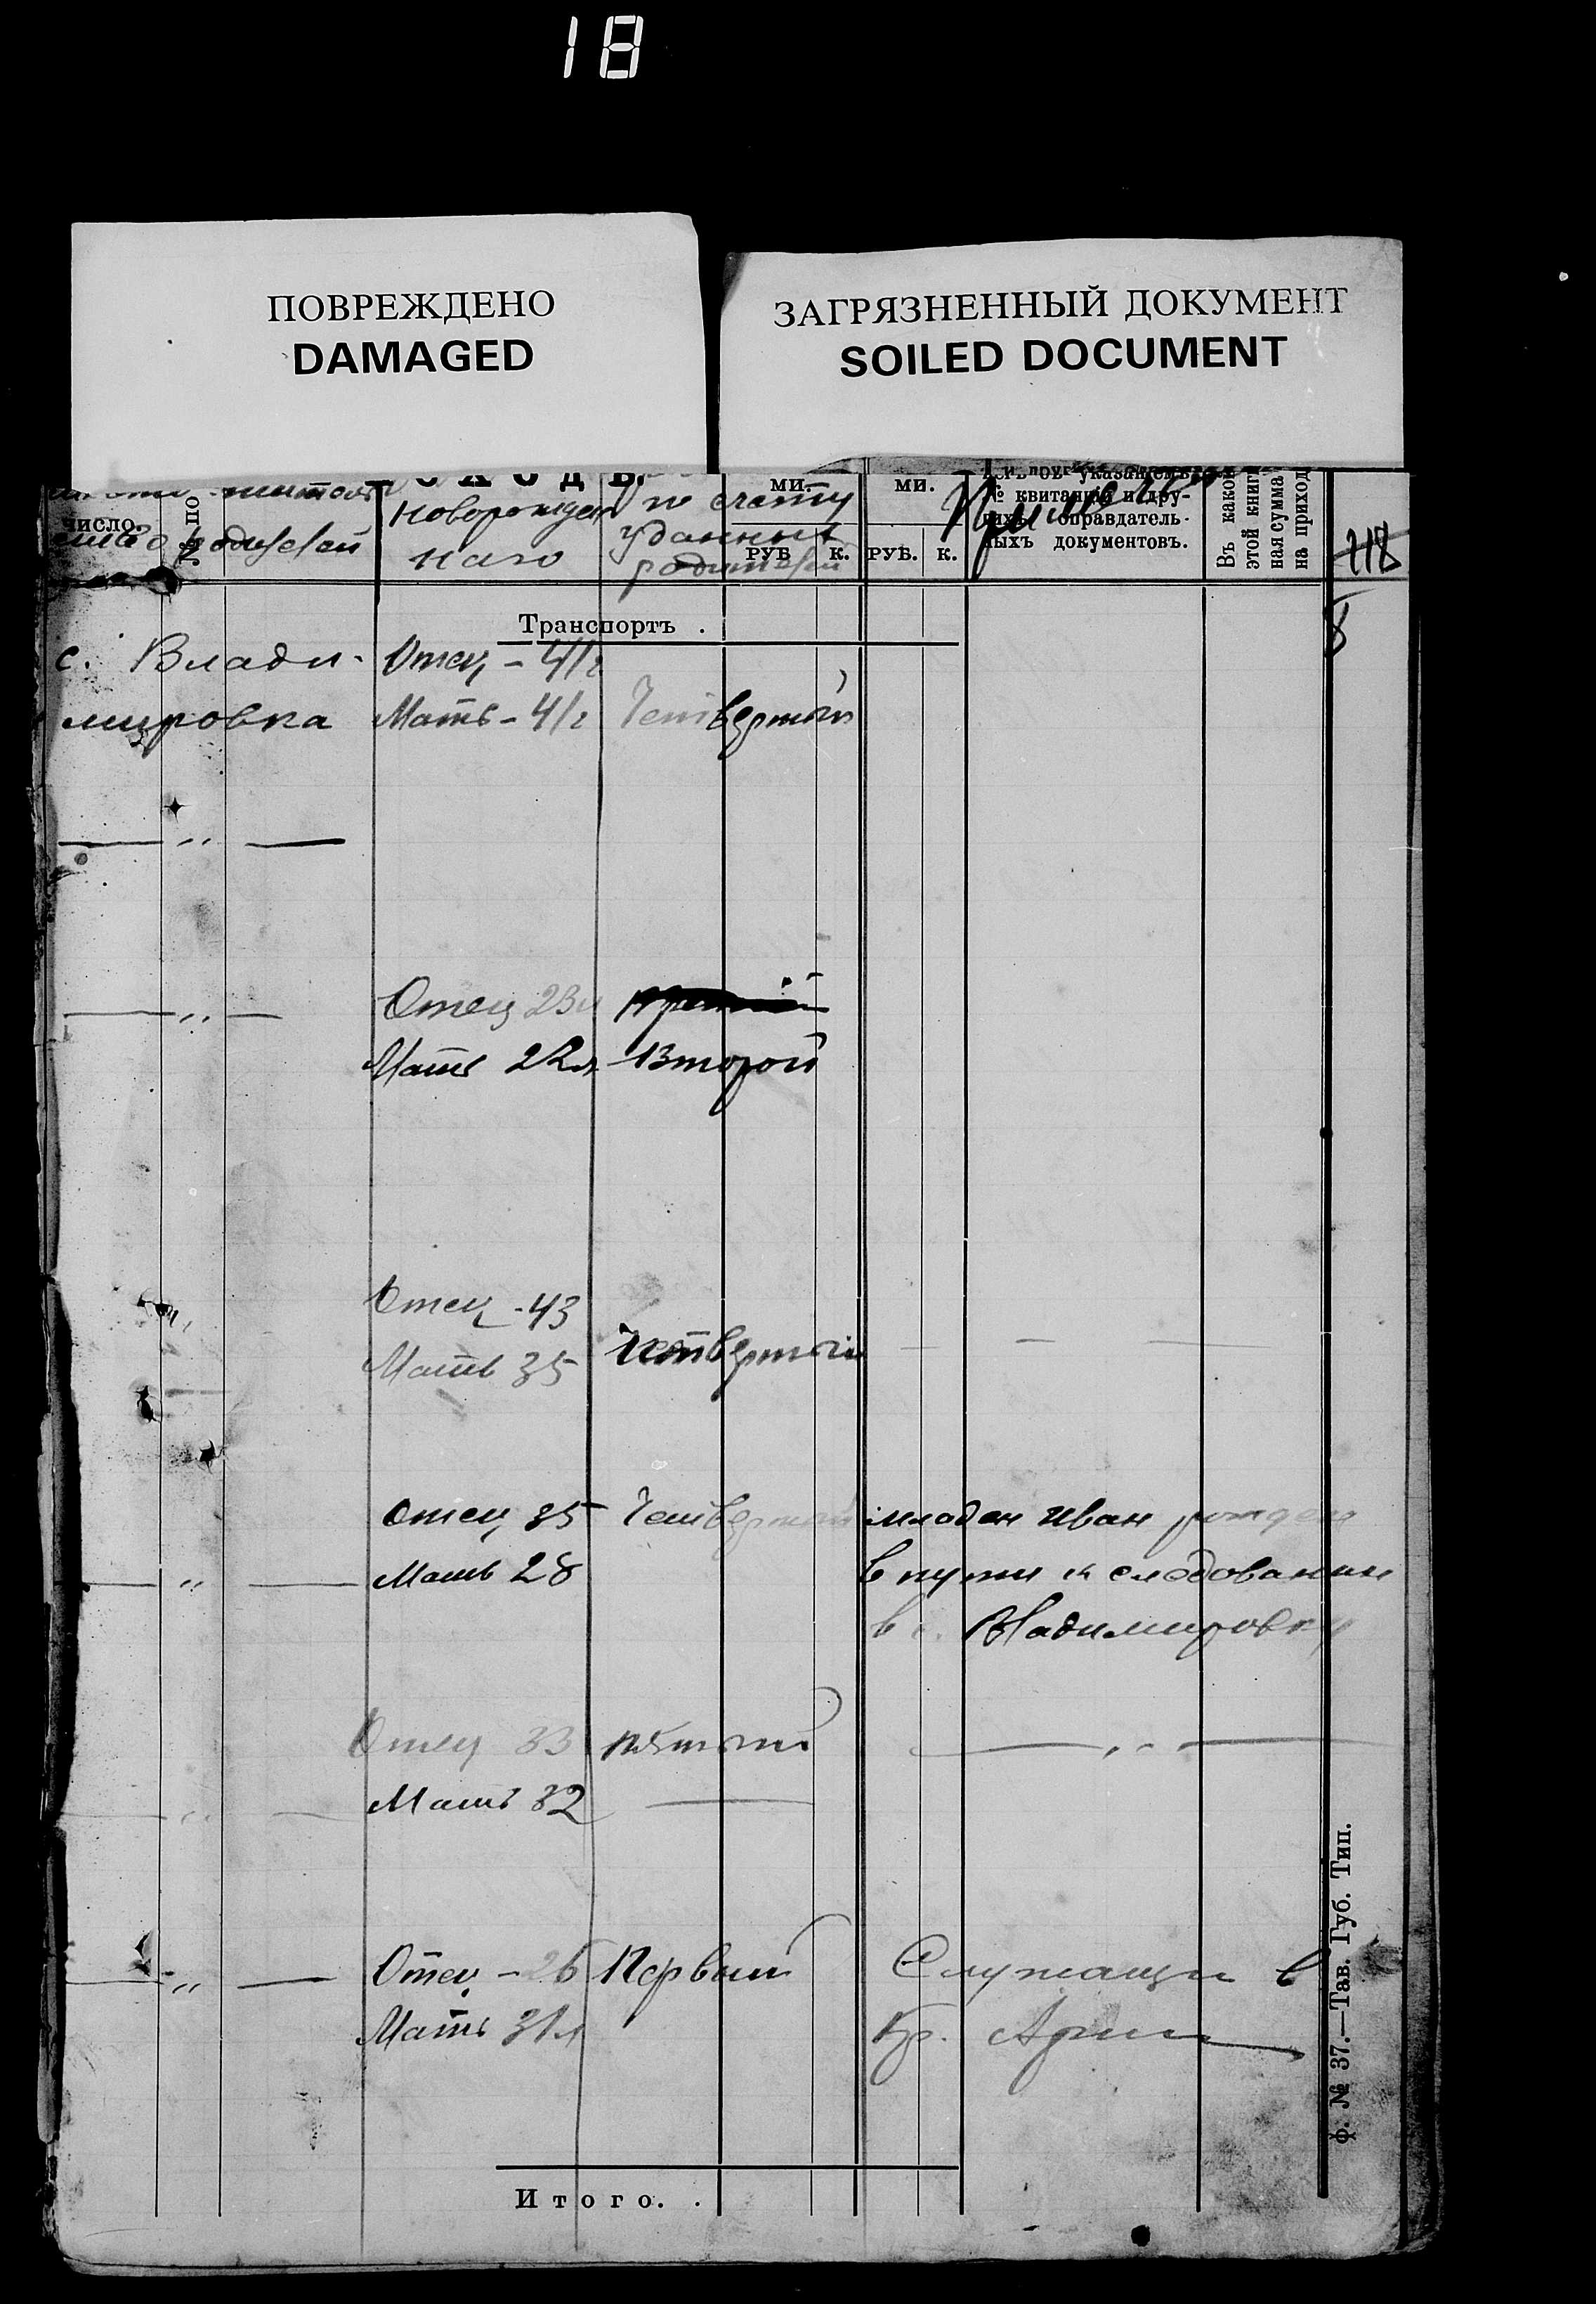 18
ПОВРЕЖДЕНО
DAMAGED
ЗАГРЯЗНЕННЫЙ ДОКУМЕНТ
SOILED DOCUMENT
число.
№ по
родителей
новорожден
наго
по счету
у данных
родителей
ми.
РУБ К.
ми.
РУБ. К.
№ квитанцій и дру-
гихъ оправдатель-
ныхъ документовъ.
Въ какой
этой книги
ная сумма
на приход
218
8
Транспортъ .
с. Влади-
мировка
Отец - 41 г
Мать - 41 г
Четвертый
— „ —
— „ —
Отец 23 л
Мать 22 л
Второй
Отец - 43
Мать 35
Четвертый
— „ —
Отец 35
Мать 28
Четвертый
младен Иван рожден
в пути к следованию
в с. Владимировку
— „ —
Отец 33
Мать 32
пятый
— „ —
— „ —
Отец - 26
Мать 31 л
Первый
Служащи в
Кр. Армии
Итого. .
ф. № 37.—Тав. Губ. Тип.